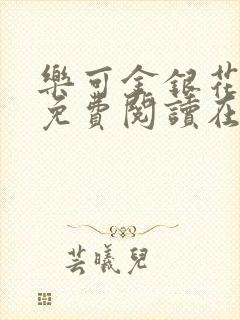 樂可金銀花
免費閱讀在
芸曦兒